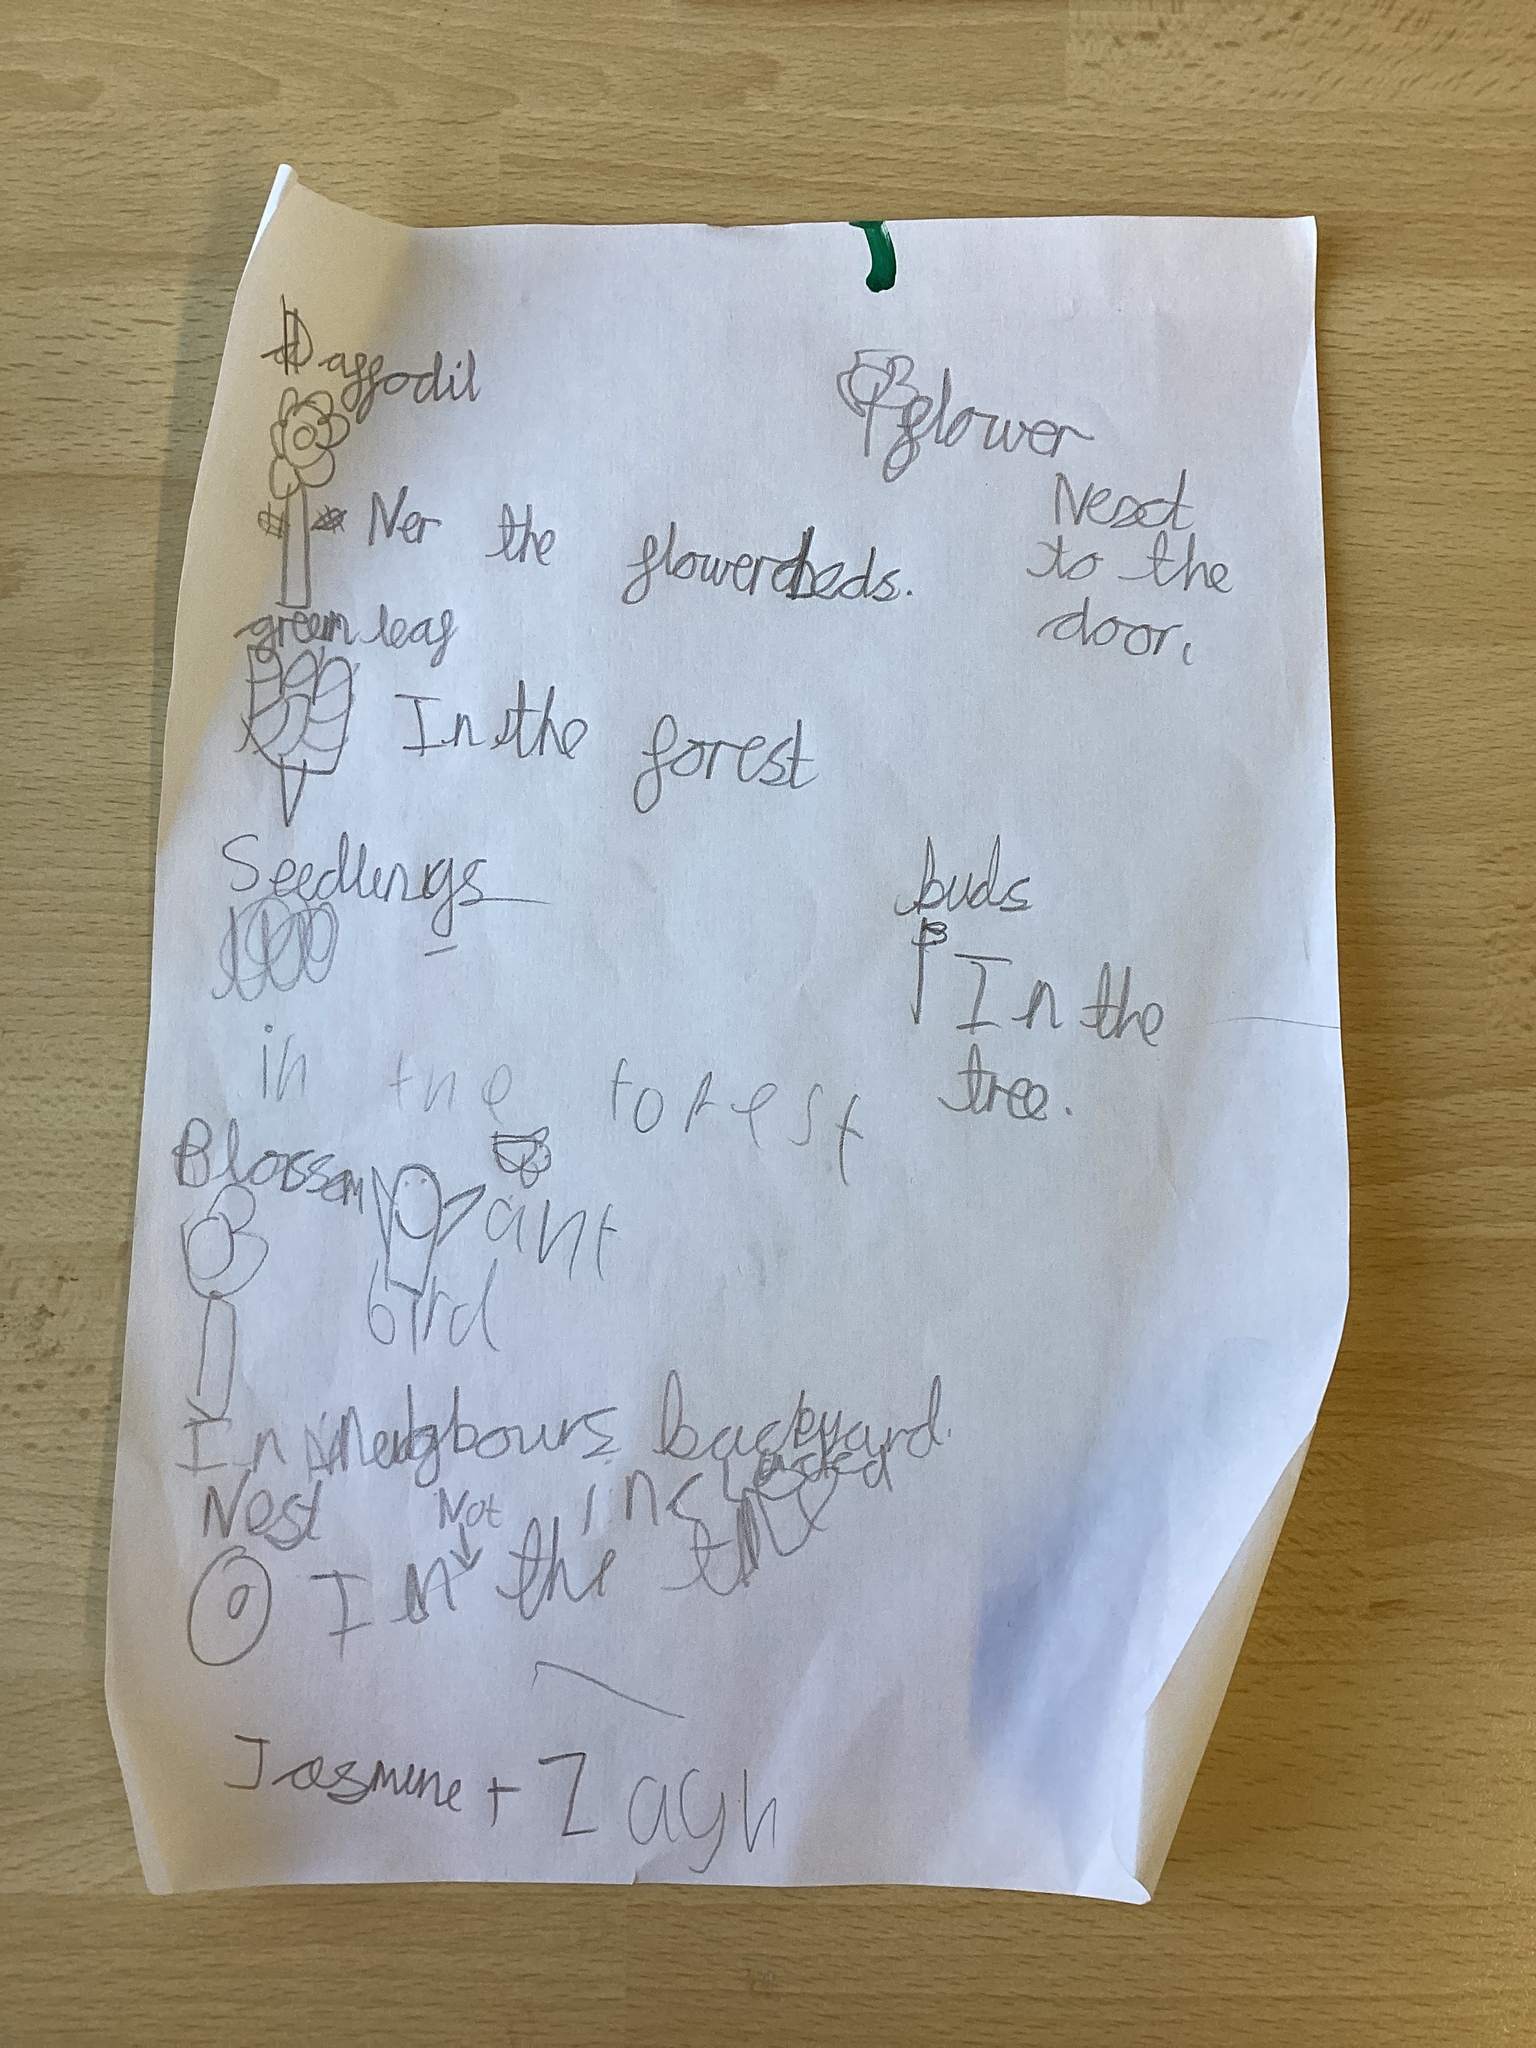 Daffodil
flower
Ner the flowerbeds.
Nesct
to the
door.
green leaf
In the forest
Seedlings
buds
In the
tree.
in the forest
Blossom
ant
bird
In neigbours backyard.
Nest
Not
In the
Jasmine + Zayn